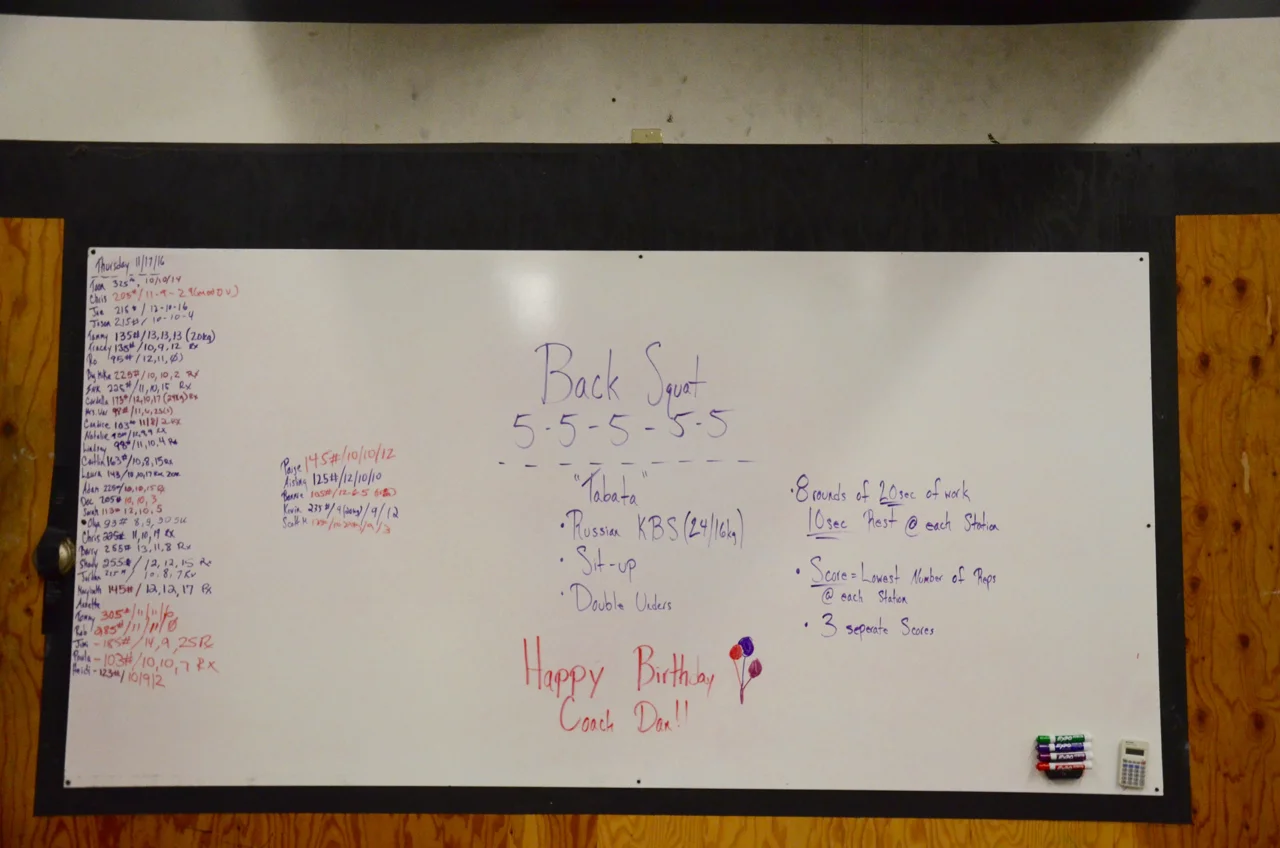 Thursday 11/17/16
325#, 10/10/14
Chris 205#/11-9-29
Joe 215#/ 12-10-16
Jason 215#/ 10-10-4
Tammy 135#/13,13,13 (20kg)
Tracey 135#/10,9,12 Rx
Ro 95#/12,11,
Big Mike 225#/10,10,2 Rx
225#/11,10,15 Rx
173#/12,10,17 Rx
Mrs. 98#/11,
Candice 103#
Natalie
Lindsey 98#/11,10,4 Rx
Caitlin 163#/10,8,15 Rx
Laura 143/10,10,17 Rx
Adam 225#/10,10,15
Doc 205# 10,10,3
Sarah 113# 12,10,5
Olga 93# 8,9,
Chris 225# 11,10,19 Rx
Barry 255# 13,11,8 Rx
255#/ 12,12,15 Rx
Jordan 10,8,7 Rx
Marybeth 145#/ 12,12,17 Rx
Annette
Tommy 305#/11/11/
Rob 285#/11/11/
Jim - 185#/14,9,25 Rx
Paula - 103#/10,10,7 Rx
Heidi - 123#/10/9/2
Paige 145#/10/10/12
Aisling 125#/12/10/10
Bonnie 105#/12-6-5
Kevin 275#/9(20kg)/9/12
Scott M.
Back Squat
5-5-5-5-5
"Tabata"
• Russian KBS (24/16kg)
• Sit-up
• Double Unders
• 8 rounds of 20sec of work
10sec Rest @ each Station
• Score = Lowest Number of Reps
@ each Station
• 3 seperate Scores
Happy Birthday
Coach Dan!!
EXPO
EXPO
EXPO
EXPO